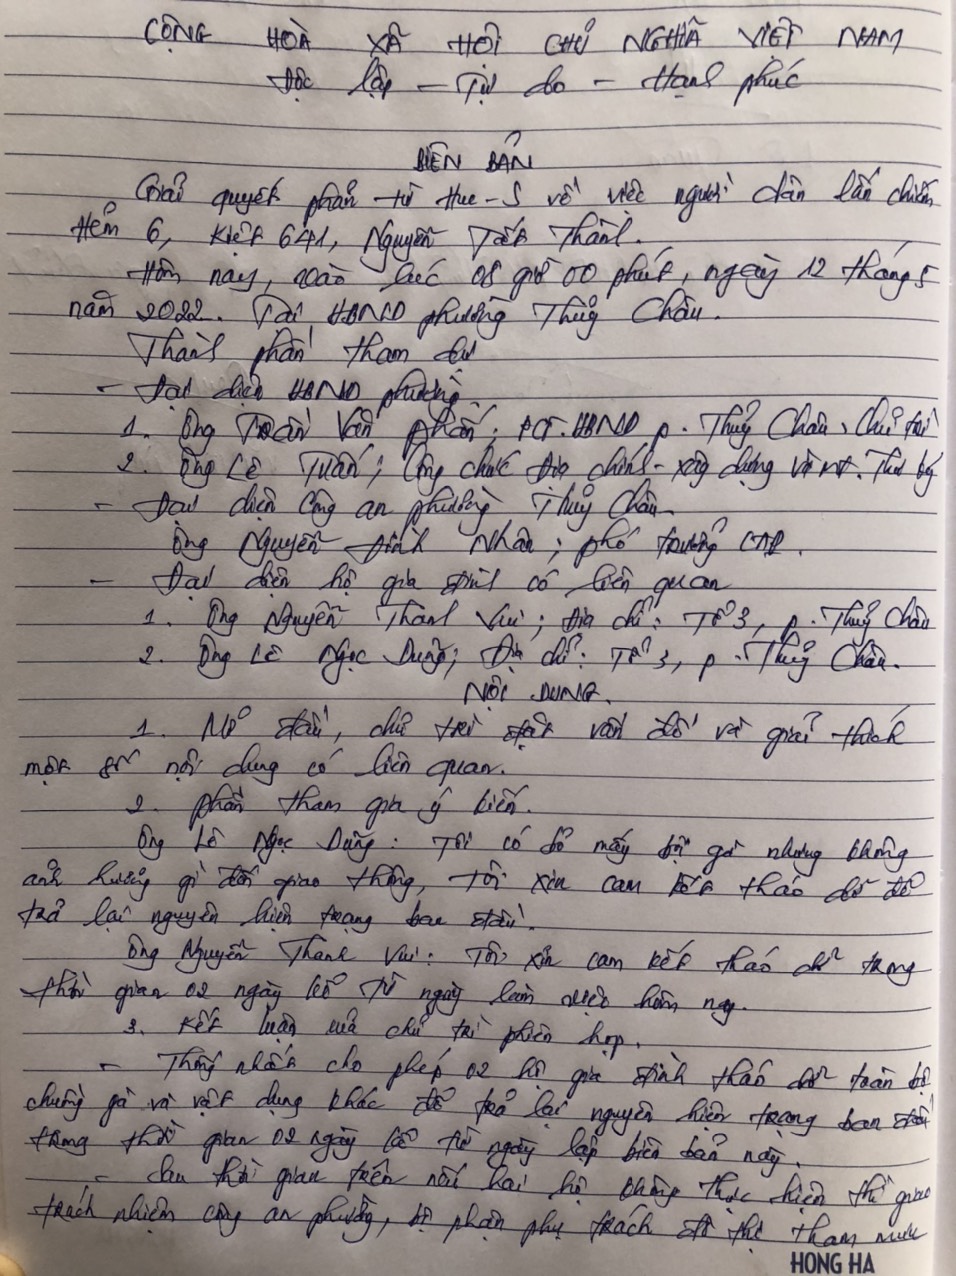 CỘNG HOÀ XÃ HỘI CHỦ NGHĨA VIỆT NAM
Độc lập - Tự do - Hạnh phúc
BIÊN BẢN
Giải quyết phản từ Hue-S về việc người dân lấn chiếm
Hẻm 6, Kiệt 641, Nguyễn Tất Thành.
Hôm nay, vào lúc 08 giờ 00 phút, ngày 12 tháng 5
năm 2022. Tại UBND phường Thuỷ Châu.
Thành phần tham dự
- Đại diện UBND phường.
1. Ông Văn ; PCT.UBND p. Thuỷ Châu, Chủ trì
2. Ông Lê Tuấn; Công chức Địa chính - xây dựng và MT. Thư ký
- Đại diện Công an phường Thuỷ Châu.
Ông Nguyễn Đình Nhân; phó trưởng CAP.
- Đại diện hộ gia đình có liên quan
1. Ông Nguyễn Thanh Vui; Địa chỉ: Tổ 3, p. Thuỷ Châu
2. Ông Lê Ngọc Dũng; Địa chỉ: Tổ 3, p. Thuỷ Châu.
NỘI DUNG.
1. Mở đầu, chủ trì đặt vấn đề và giải thích
một số nội dung có liên quan.
2. Phần tham gia ý kiến.
Ông Lê Ngọc Dũng: Tôi có để mấy bội gà nhưng không
ảnh hưởng gì đến giao thông, Tôi xin cam kết tháo dỡ để
trả lại nguyên hiện trạng ban đầu.
Ông Nguyễn Thanh Vui: Tôi xin cam kết tháo dỡ trong
thời gian 02 ngày kể từ ngày làm việc hôm nay.
3. Kết luận của chủ trì phiên họp.
- Thống nhất cho phép 02 hộ gia đình tháo dỡ toàn bộ
chuồng gà và vật dụng khác để trả lại nguyên hiện trang ban đầu
trong thời gian 02 ngày kể từ ngày lập biên bản này.
- Sau thời gian trên nếu hai hộ không thực hiện thì giao
trách nhiệm công an phường, bộ phận phụ trách đô thị tham mưu
HONG HA